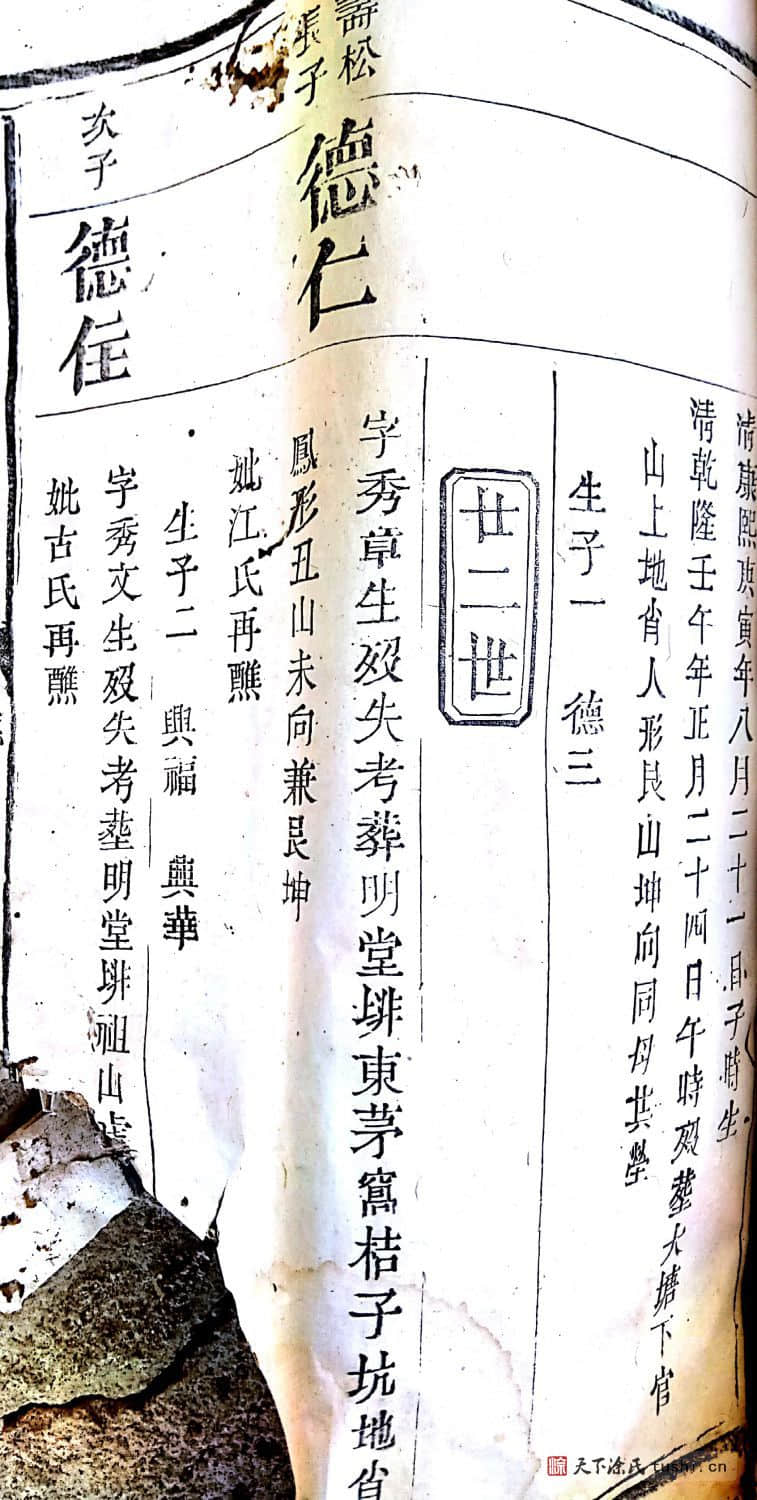 清康熙庚寅年八月二十一日子時生
清乾隆壬午年正月二十四日午時歿塟大塘下官
山上地肖人形艮山坤向同母共塋
生子一 德三
廿二世
壽松
長子
德仁
字秀章生歿失考葬明堂排東茅窩桔子坑地肖
鳳形丑山未向兼艮坤
妣江氏再醮
生子二 興福 興華
次子
德任
字秀文生歿失考塟明堂排祖山
妣古氏再醮
天下涂氏 tushi.cn